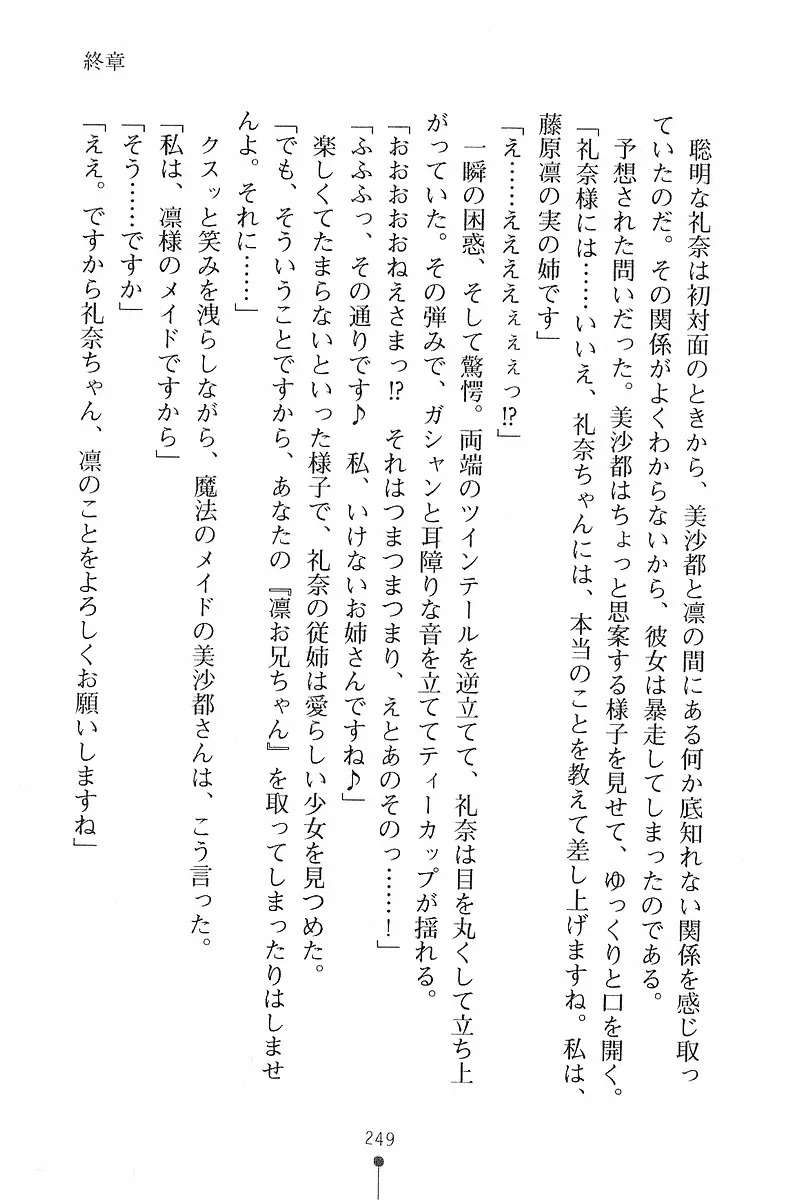 終章
聡明な礼奈は初対面のときから、美沙都と凛の間にある何か底知れない関係を感じ取っ
ていたのだ。その関係がよくわからないから、彼女は暴走してしまったのである。
予想された問いだった。美沙都はちょっと思案する様子を見せて、ゆっくりと口を開く。
「礼奈様には……いいえ、礼奈ちゃんには、本当のことを教えて差し上げますね。私は、
藤原凛の実の姉です」
「え……ええええぇぇぇっ!?」
一瞬の困惑、そして驚愕。両端のツインテールを逆立てて、礼奈は目を丸くして立ち上
がっていた。その弾みで、ガシャンと耳障りな音を立ててティーカップが揺れる。
「おおおおおねえさまっ!?　それはつまつまつまり、えとあのそのっ……！」
「ふふふっ、その通りです♪　私、いけないお姉さんですね♪」
楽しくてたまらないといった様子で、礼奈の従姉は愛らしい少女を見つめた。
「でも、そういうことですから、あなたの『凛お兄ちゃん』を取ってしまったりはしませ
んよ。それに……」
クスッと笑みを洩らしながら、魔法のメイドの美沙都さんは、こう言った。
「私は、凛様のメイドですから」
「そう……ですか」
「ええ。ですから礼奈ちゃん、凛のことをよろしくお願いしますね」
249